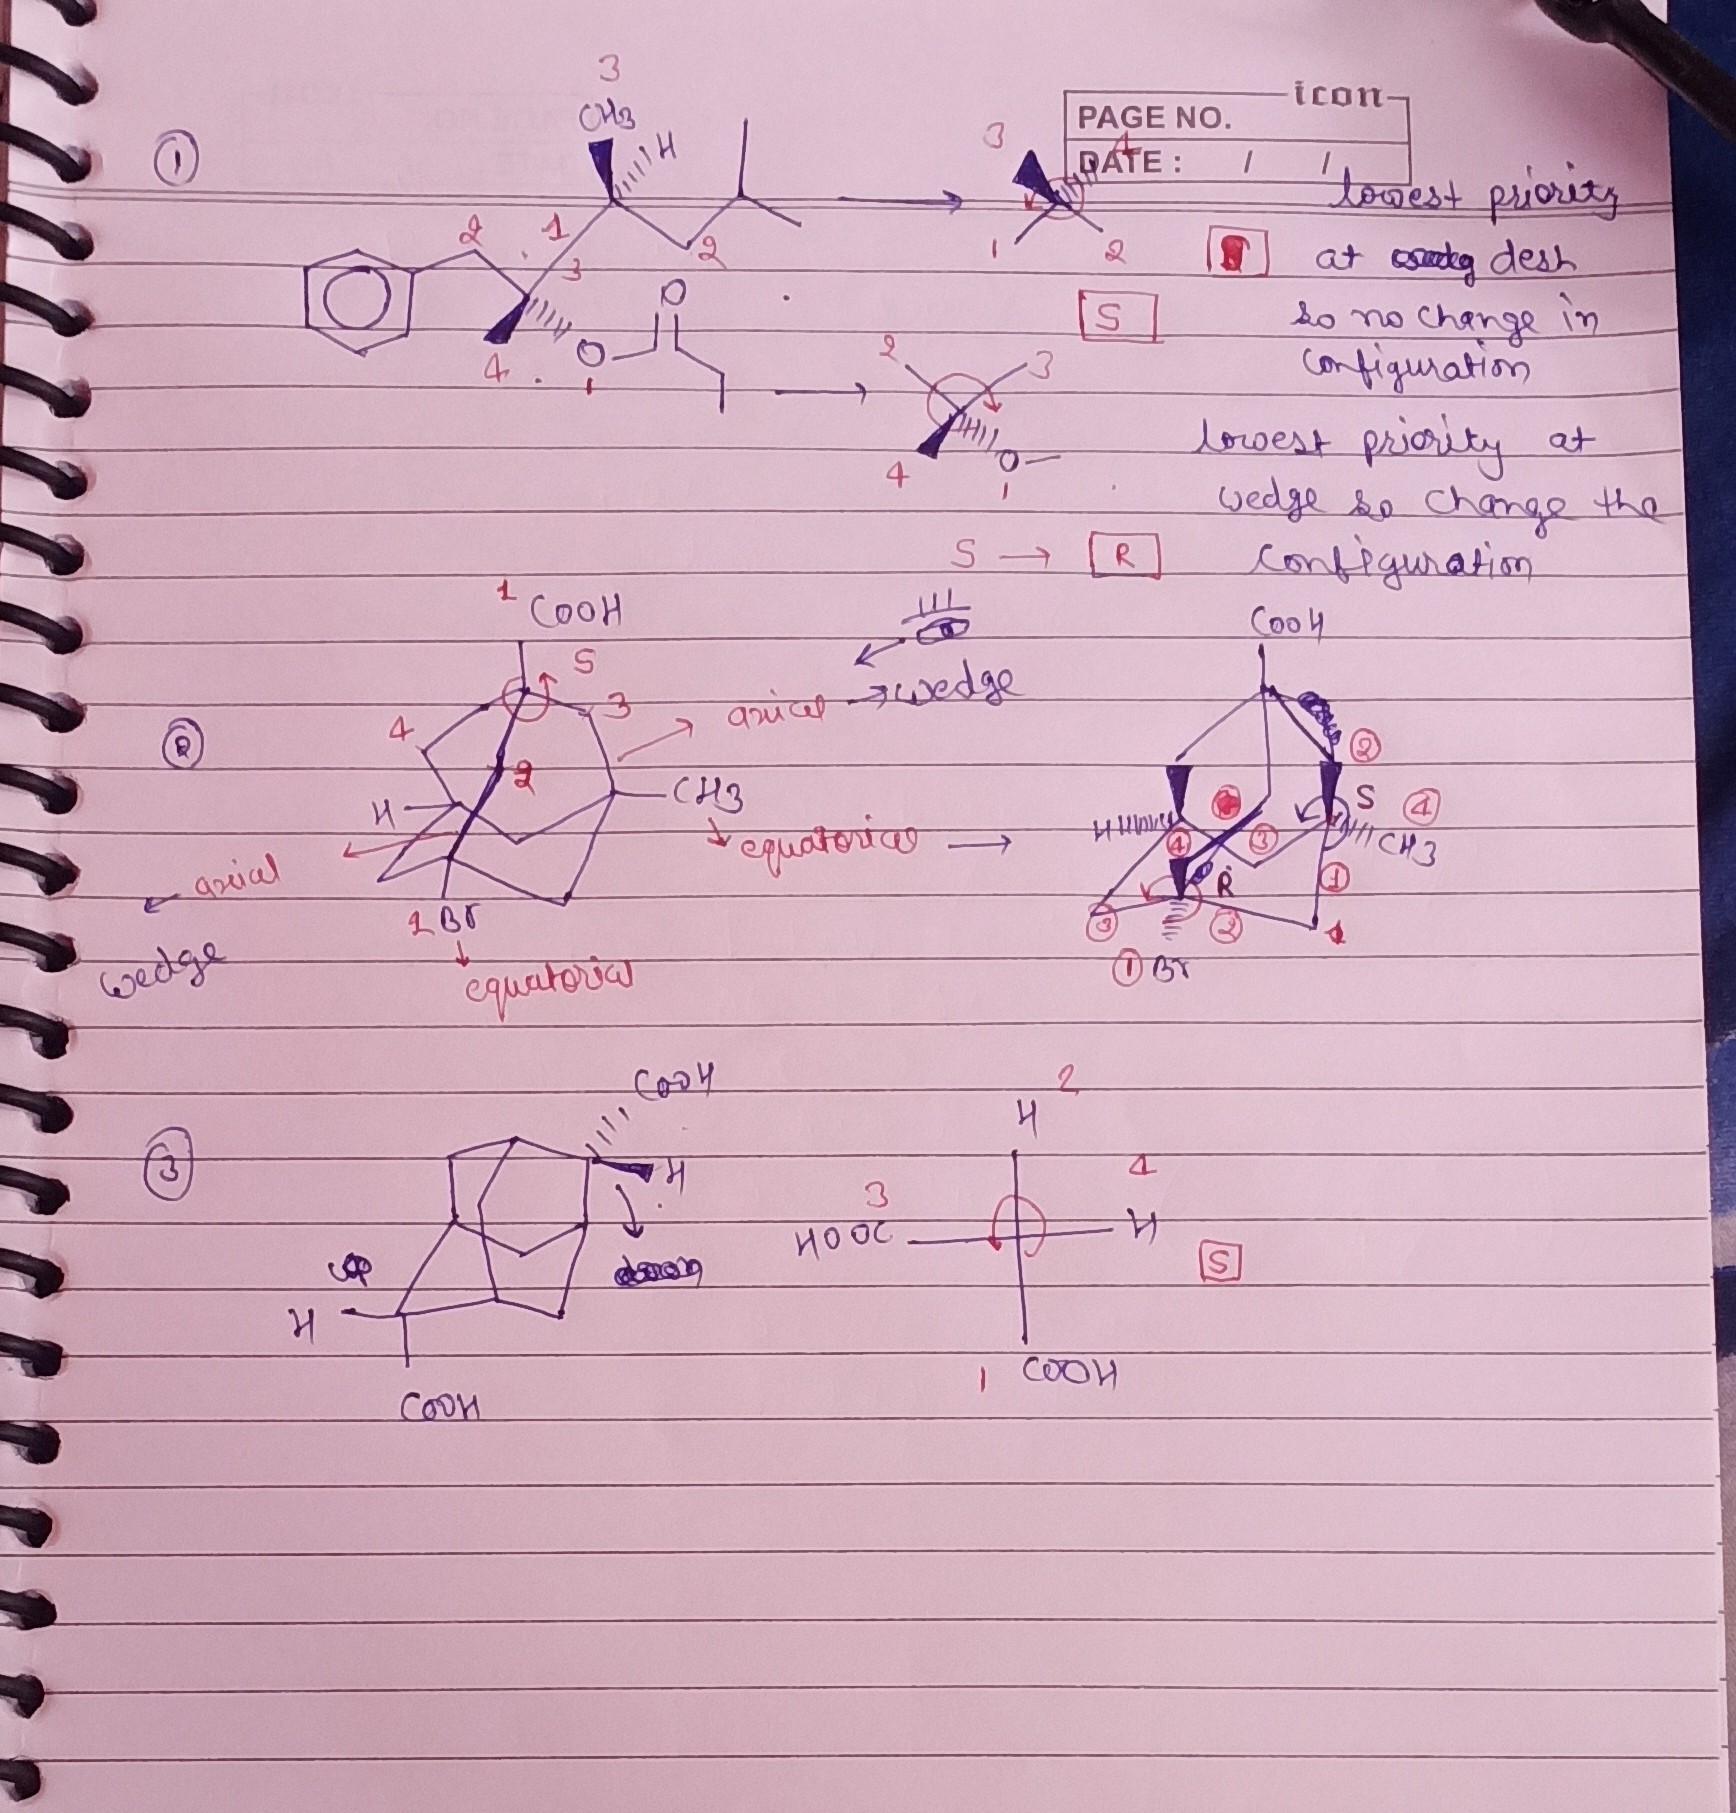 icon
PAGE NO.
DATE : / /
①
3
CH3
H
2
1
3
2
4
O
O
1
3
4
1
2
S
lowest priority
at desh
so no change in
configuration
2
3
4
O
1
lowest priority at
wedge so change the
configuration
S → R
②
1 COOH
S
4
3
2
H
CH3
axial → wedge
equatorial →
axial
wedge
1 Br
equatorial
COOH
②
S
④
H
CH3
④
③
①
R
③
②
1
① Br
③
COOH
H
up
H
COOH
2
H
4
3
HOOC
H
S
1 COOH